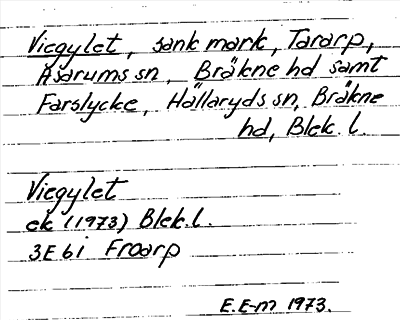 Viegylet, sank mark, Tararp,
Åsarums sn, Bräkne hd samt
Farslycke, Hällaryds sn, Bräkne
hd, Blek. l.
Viegylet
ek (1973) Blek. l.
3E 6i Froarp
E.E-m 1973.